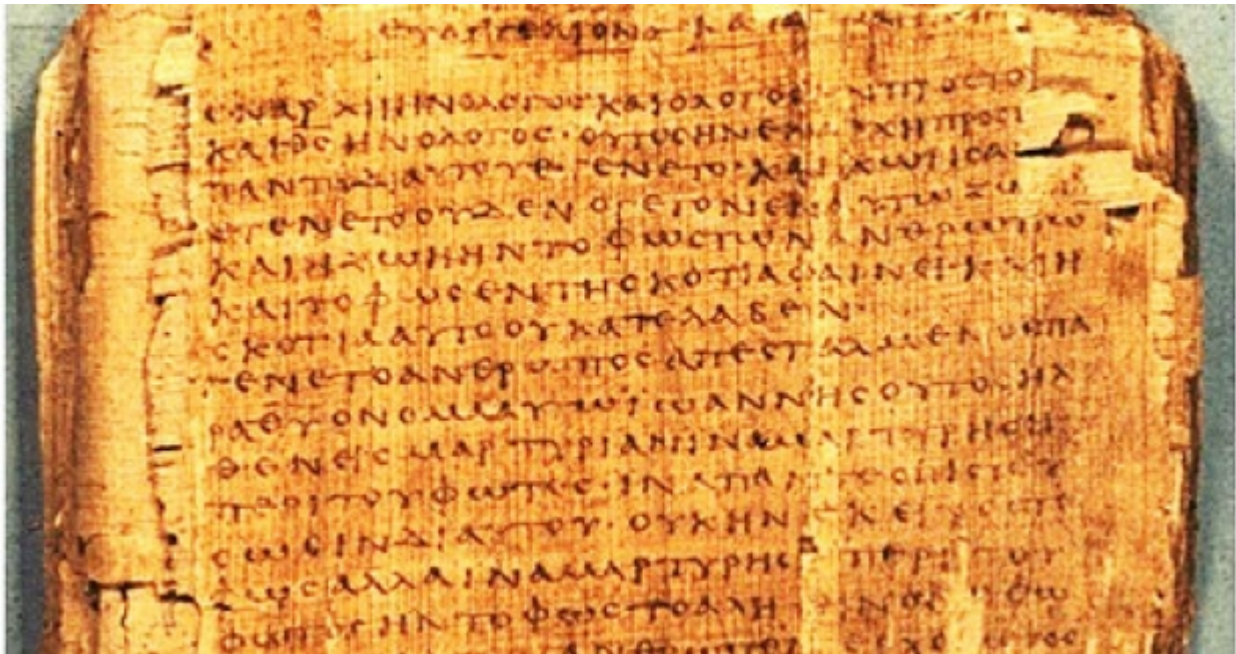 ευαγγελιον κατα
εναρχηηνολογοσκαιολογοσηνπροστο
καιθσηνολογοσ·ουτοσηνεναρχηπροστ
πανταδιαυτουεγενετο·καιχωρισα
εγενετοουδενογεγονενεναυτωζω
καιηζωηηντοφωστωνανθρωπω
καιτοφωσεντησκοτιαφαινει·καιη
σκοτιααυτοουκατελαβεν·
γενετοανθρωποσαπεσταλμενοσπα
ραθυονομααυτωϊωαννησουτοσηλ
θενεισμαρτυριανιναμαρτυρηση
περιτουφωτοσ·ιναπαντεσπιστευ
σωσινδιαυτου·ουκηνεκεινοστο
φωσαλλαιναμαρτυρησηπεριτου
φωτοσηντοφωστοαληθινονοφω